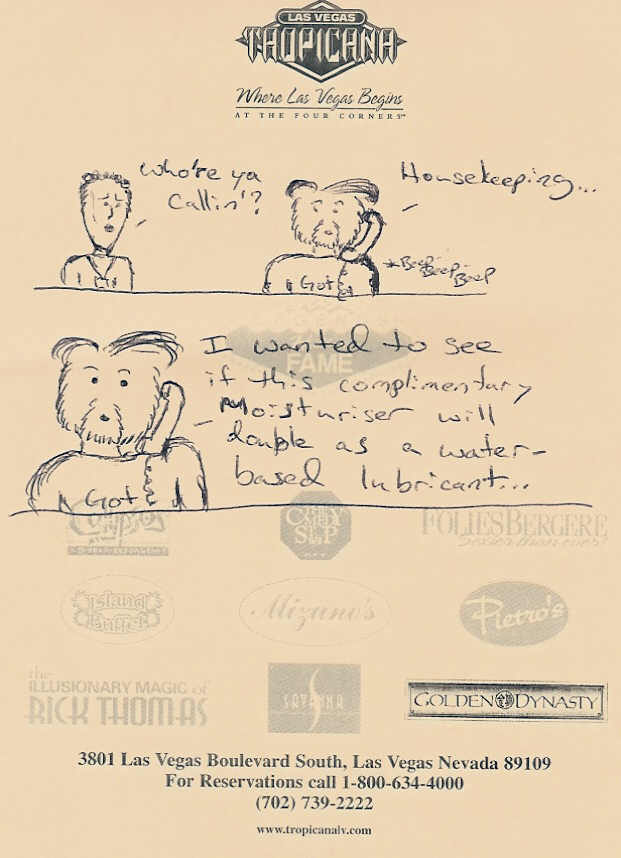 LAS VEGAS
TROPICANA
Where Las Vegas Begins
AT THE FOUR CORNERS℠
Who're ya
Callin'?
Housekeeping...
*Beep-
Beep-
Beep
Got
I wanted to see
if this complimentary
Moisturiser will
double as a water-
based lubricant...
Got
FAME
FOLIES BERGERE
Island
Buffet
Mizuno's
Pietro's
the
ILLUSIONARY MAGIC of
RICK THOMAS
SAVANNA
GOLDEN DYNASTY
3801 Las Vegas Boulevard South, Las Vegas Nevada 89109
For Reservations call 1-800-634-4000
(702) 739-2222
www.tropicanalv.com